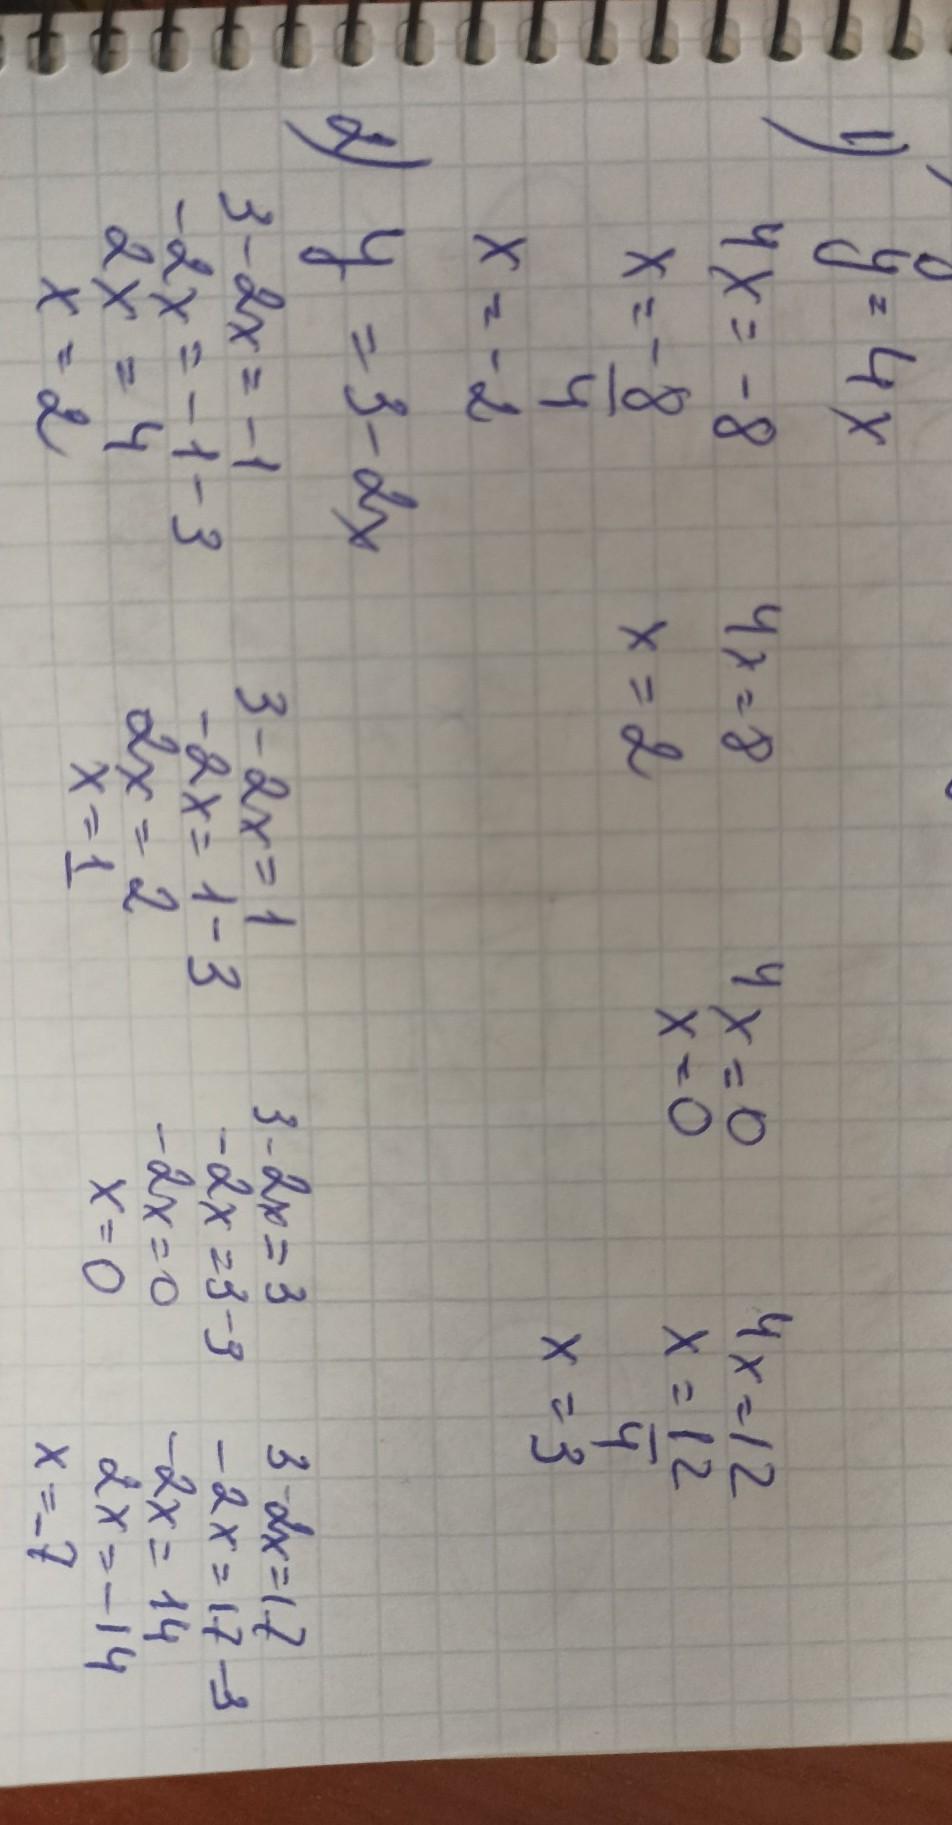 1) y = 4x
4x = -8 4x = 8 4x = 0 4x = 12
x = -8/4 x = 2 x = 0 x = 12/4
x = -2 x = 3
2) y = 3 - 2x
3 - 2x = -1 3 - 2x = 1 3 - 2x = 3 3 - 2x = 17
-2x = -1 - 3 -2x = 1 - 3 -2x = 3 - 3 -2x = 17 - 3
2x = 4 2x = 2 -2x = 0 -2x = 14
x = 2 x = 1 x = 0 2x = -14
x = -7